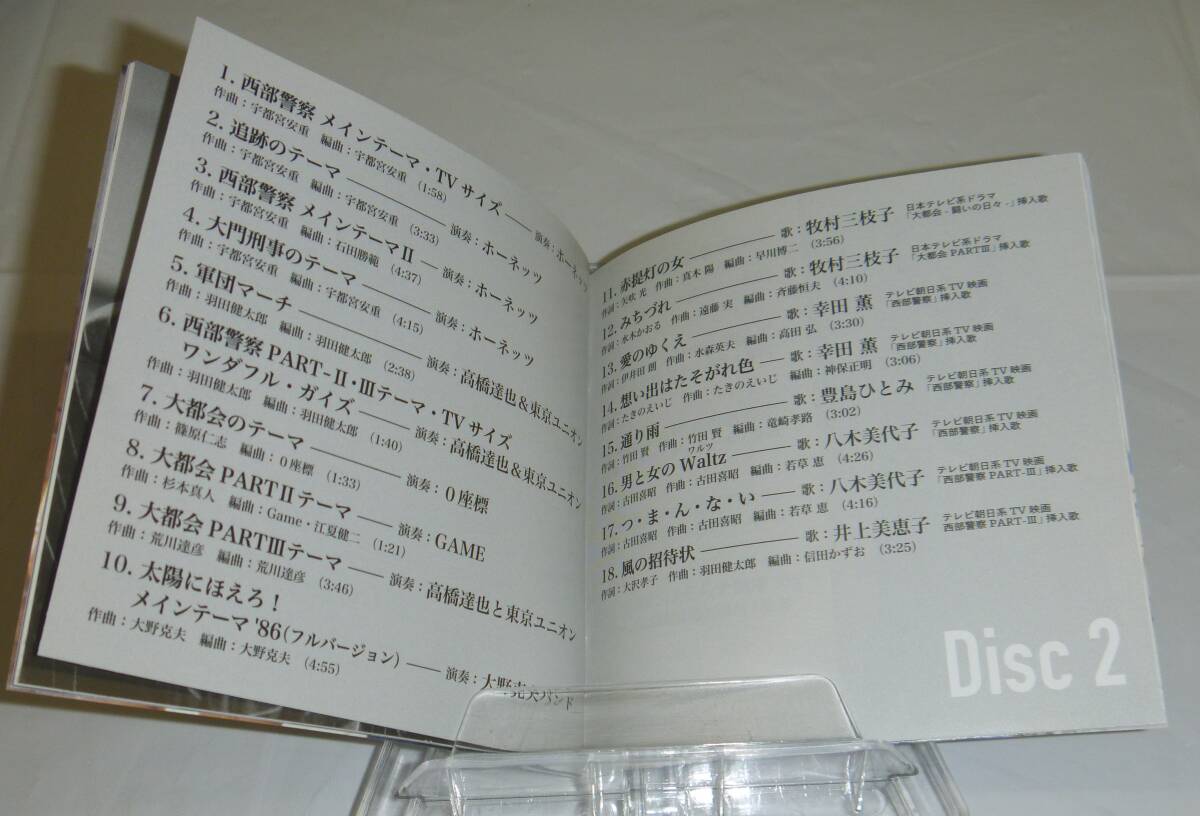 1. 西部警察 メインテーマ・TVサイズ 演奏：ホーネッツ
作曲：宇都宮安重 編曲：宇都宮安重 (1:58)
2. 追跡のテーマ 演奏：ホーネッツ
作曲：宇都宮安重 編曲：宇都宮安重 (3:33)
3. 西部警察 メインテーマⅡ 演奏：ホーネッツ
作曲：宇都宮安重 編曲：石田勝範 (4:37)
4. 大門刑事のテーマ 演奏：ホーネッツ
作曲：宇都宮安重 編曲：宇都宮安重 (4:15)
5. 軍団マーチ 演奏：高橋達也＆東京ユニオン
作曲：羽田健太郎 編曲：羽田健太郎 (2:38)
6. 西部警察 PART-Ⅱ・Ⅲテーマ・TVサイズ
ワンダフル・ガイズ 演奏：高橋達也＆東京ユニオン
作曲：羽田健太郎 編曲：羽田健太郎 (1:40)
7. 大都会のテーマ 演奏：0座標
作曲：篠原仁志 編曲：0座標 (1:33)
8. 大都会 PARTⅡテーマ 演奏：GAME
作曲：杉本真人 編曲：Game・江夏健二 (1:21)
9. 大都会 PARTⅢテーマ 演奏：高橋達也と東京ユニオン
作曲：荒川達彦 編曲：荒川達彦 (3:46)
10. 太陽にほえろ！
メインテーマ '86(フルバージョン) 演奏：大野克夫バンド
作曲：大野克夫 編曲：大野克夫 (4:55)
11. 赤提灯の女 歌：牧村三枝子 日本テレビ系ドラマ
「大都会 - 闘いの日々 -」挿入歌
作詞：矢吹 光 作曲：真木 陽 編曲：早川博二 (3:56)
12. みちづれ 歌：牧村三枝子 日本テレビ系ドラマ
「大都会 PARTⅢ」挿入歌
作詞：水木かおる 作曲：遠藤 実 編曲：斉藤恒夫 (4:10)
13. 愛のゆくえ 歌：幸田 薫 テレビ朝日系 TV 映画
「西部警察」挿入歌
作詞：伊井田 朗 作曲：水森英夫 編曲：高田 弘 (3:30)
14. 想い出はたそがれ色 歌：幸田 薫 テレビ朝日系 TV 映画
「西部警察」挿入歌
作詞：たきのえいじ 作曲：たきのえいじ 編曲：神保正明 (3:06)
15. 通り雨 歌：豊島ひとみ テレビ朝日系 TV 映画
「西部警察」挿入歌
作詞：竹田 賢 作曲：竹田 賢 編曲：竜崎孝路 (3:02)
ワルツ
16. 男と女の Waltz 歌：八木美代子 テレビ朝日系 TV 映画
「西部警察」挿入歌
作詞：古田喜昭 作曲：古田喜昭 編曲：若草 恵 (4:26)
17. つ・ま・ん・な・い 歌：八木美代子 テレビ朝日系 TV 映画
「西部警察 PART-Ⅲ」挿入歌
作詞：古田喜昭 作曲：古田喜昭 編曲：若草 恵 (4:16)
18. 風の招待状 歌：井上美恵子 テレビ朝日系 TV 映画
「西部警察 PART-Ⅲ」挿入歌
作詞：大沢孝子 作曲：羽田健太郎 編曲：信田かずお (3:25)
Disc 2